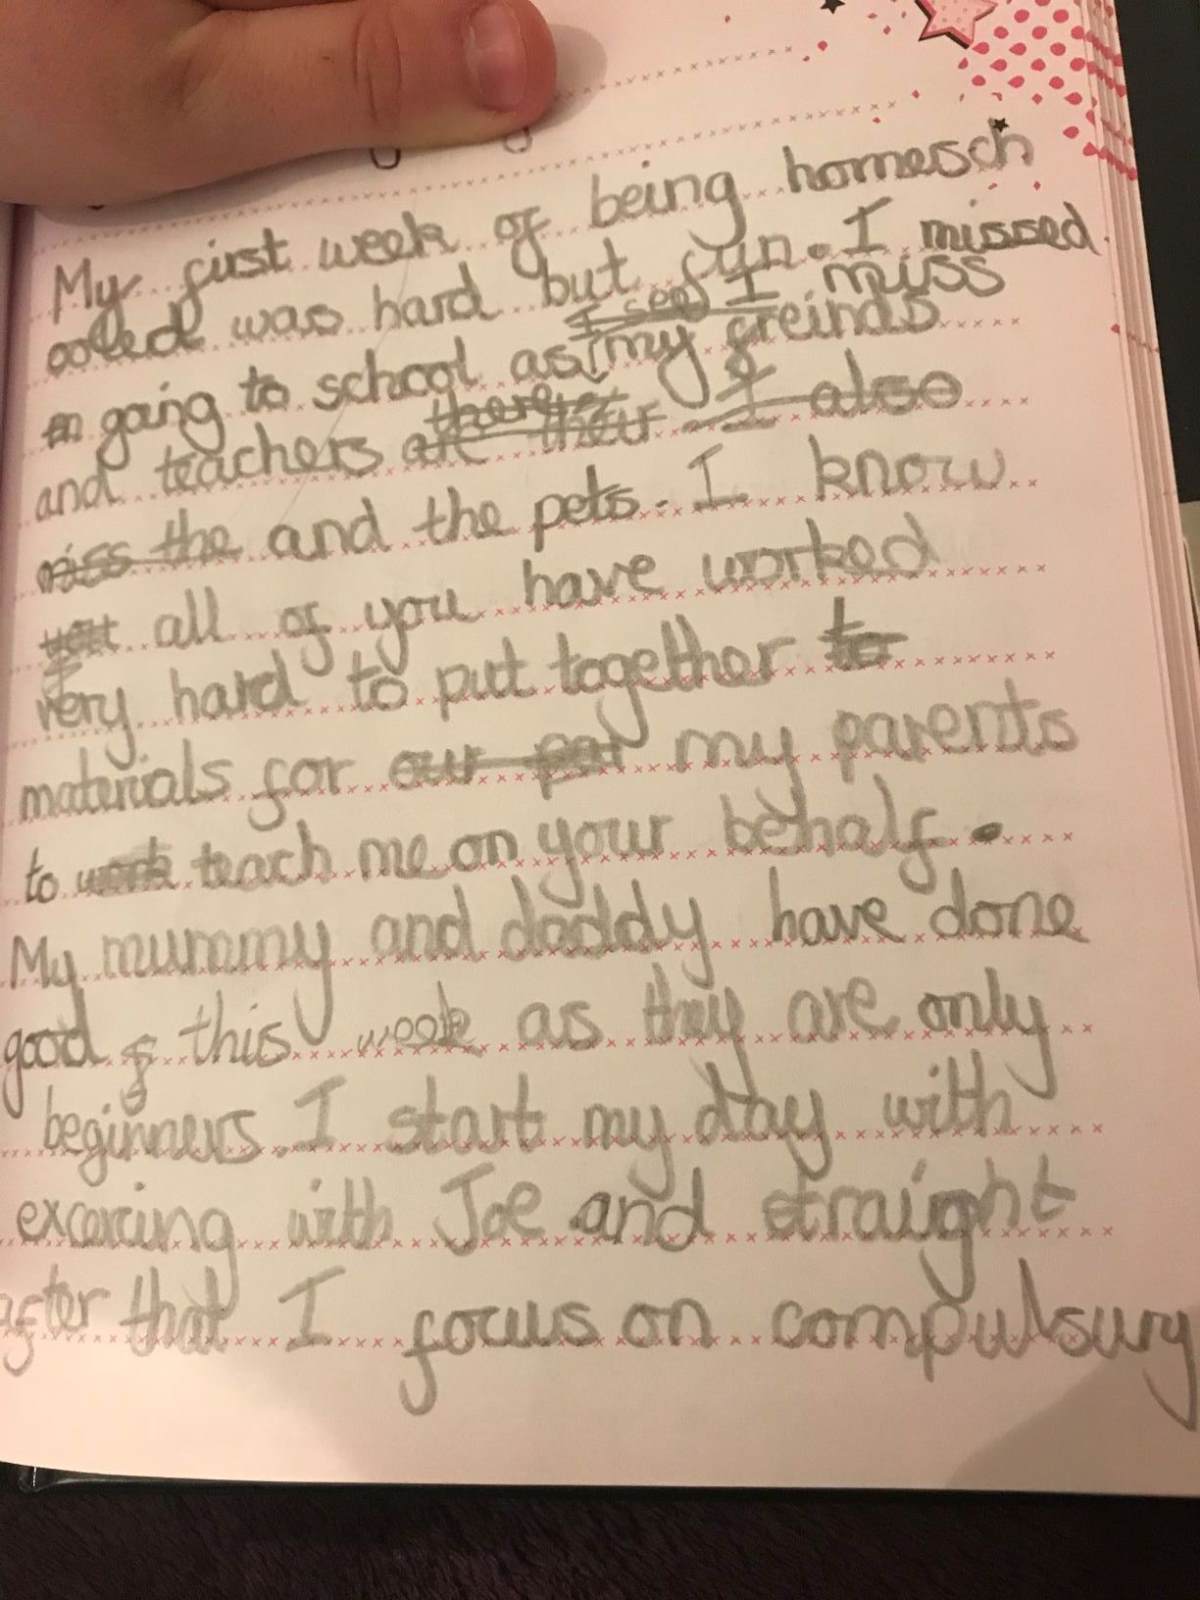 My first week of being homesch
ooled was hard but fun. I missed
I see I miss
going to school as my freinds
and teachers are their I also
there
miss the and the pets. I know
all of you have worked
very hard to put together to
materials for our par my parents
to work teach me on your behalf.
My mummy and daddy have done
good this week as they are only
beginners. I start my day with
excercing with Joe and straight
after that I focus on compulsury